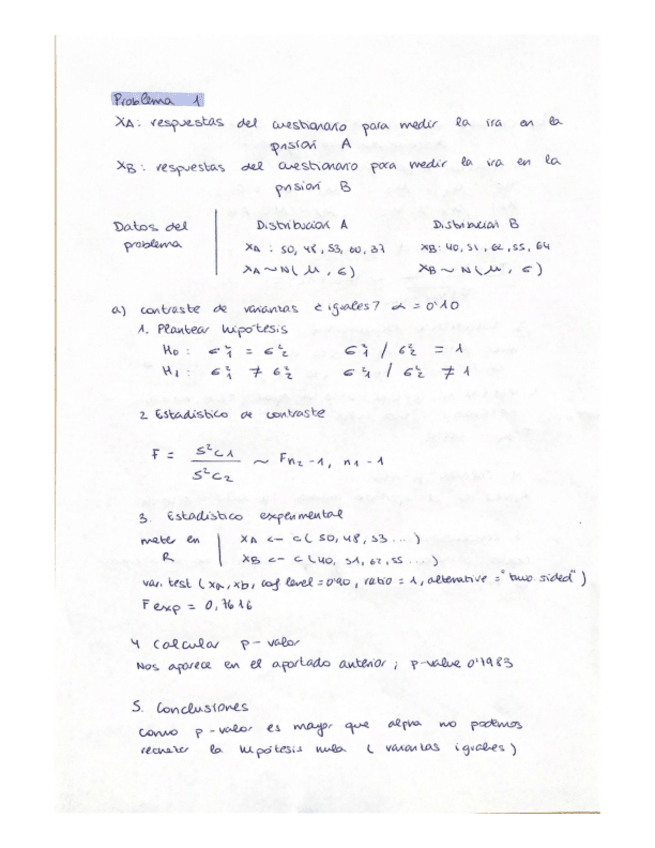 Problema 1
XA: respuestas del cuestionario para medir la ira en la
prisión A
XB: respuestas del cuestionario para medir la ira en la
prisión B
Datos del problema
Distribución A
Distribución B
XA : 50, 48, 53, 60, 37
XB: 40, 51, 62, 55, 64
XA ~ N( μ, σ)
XB ~ N( μ, σ)
a) contraste de varianzas ¿iguales? α = 0'10
1. Plantear hipótesis
H0 : σ²1 = σ²2   σ²1 / σ²2 = 1
H1 : σ²1 ≠ σ²2   σ²1 / σ²2 ≠ 1
2 Estadístico de contraste
F = S²C1 / S²C2 ~ Fn2-1, n1-1
3. Estadístico experimental
meter en R
XA <- c( 50, 48, 53 ... )
XB <- c(40, 51, 62, 55 ... )
var. test ( xa, xb, conf level = 0'90, ratio = 1, alternative = "two sided" )
F exp = 0,7616
4 Calcular p-valor
Nos aparece en el apartado anterior ; p-value 0'7983
5. Conclusiones
Como p-valor es mayor que alpha no podemos
rechazar la hipótesis nula ( varianzas iguales )